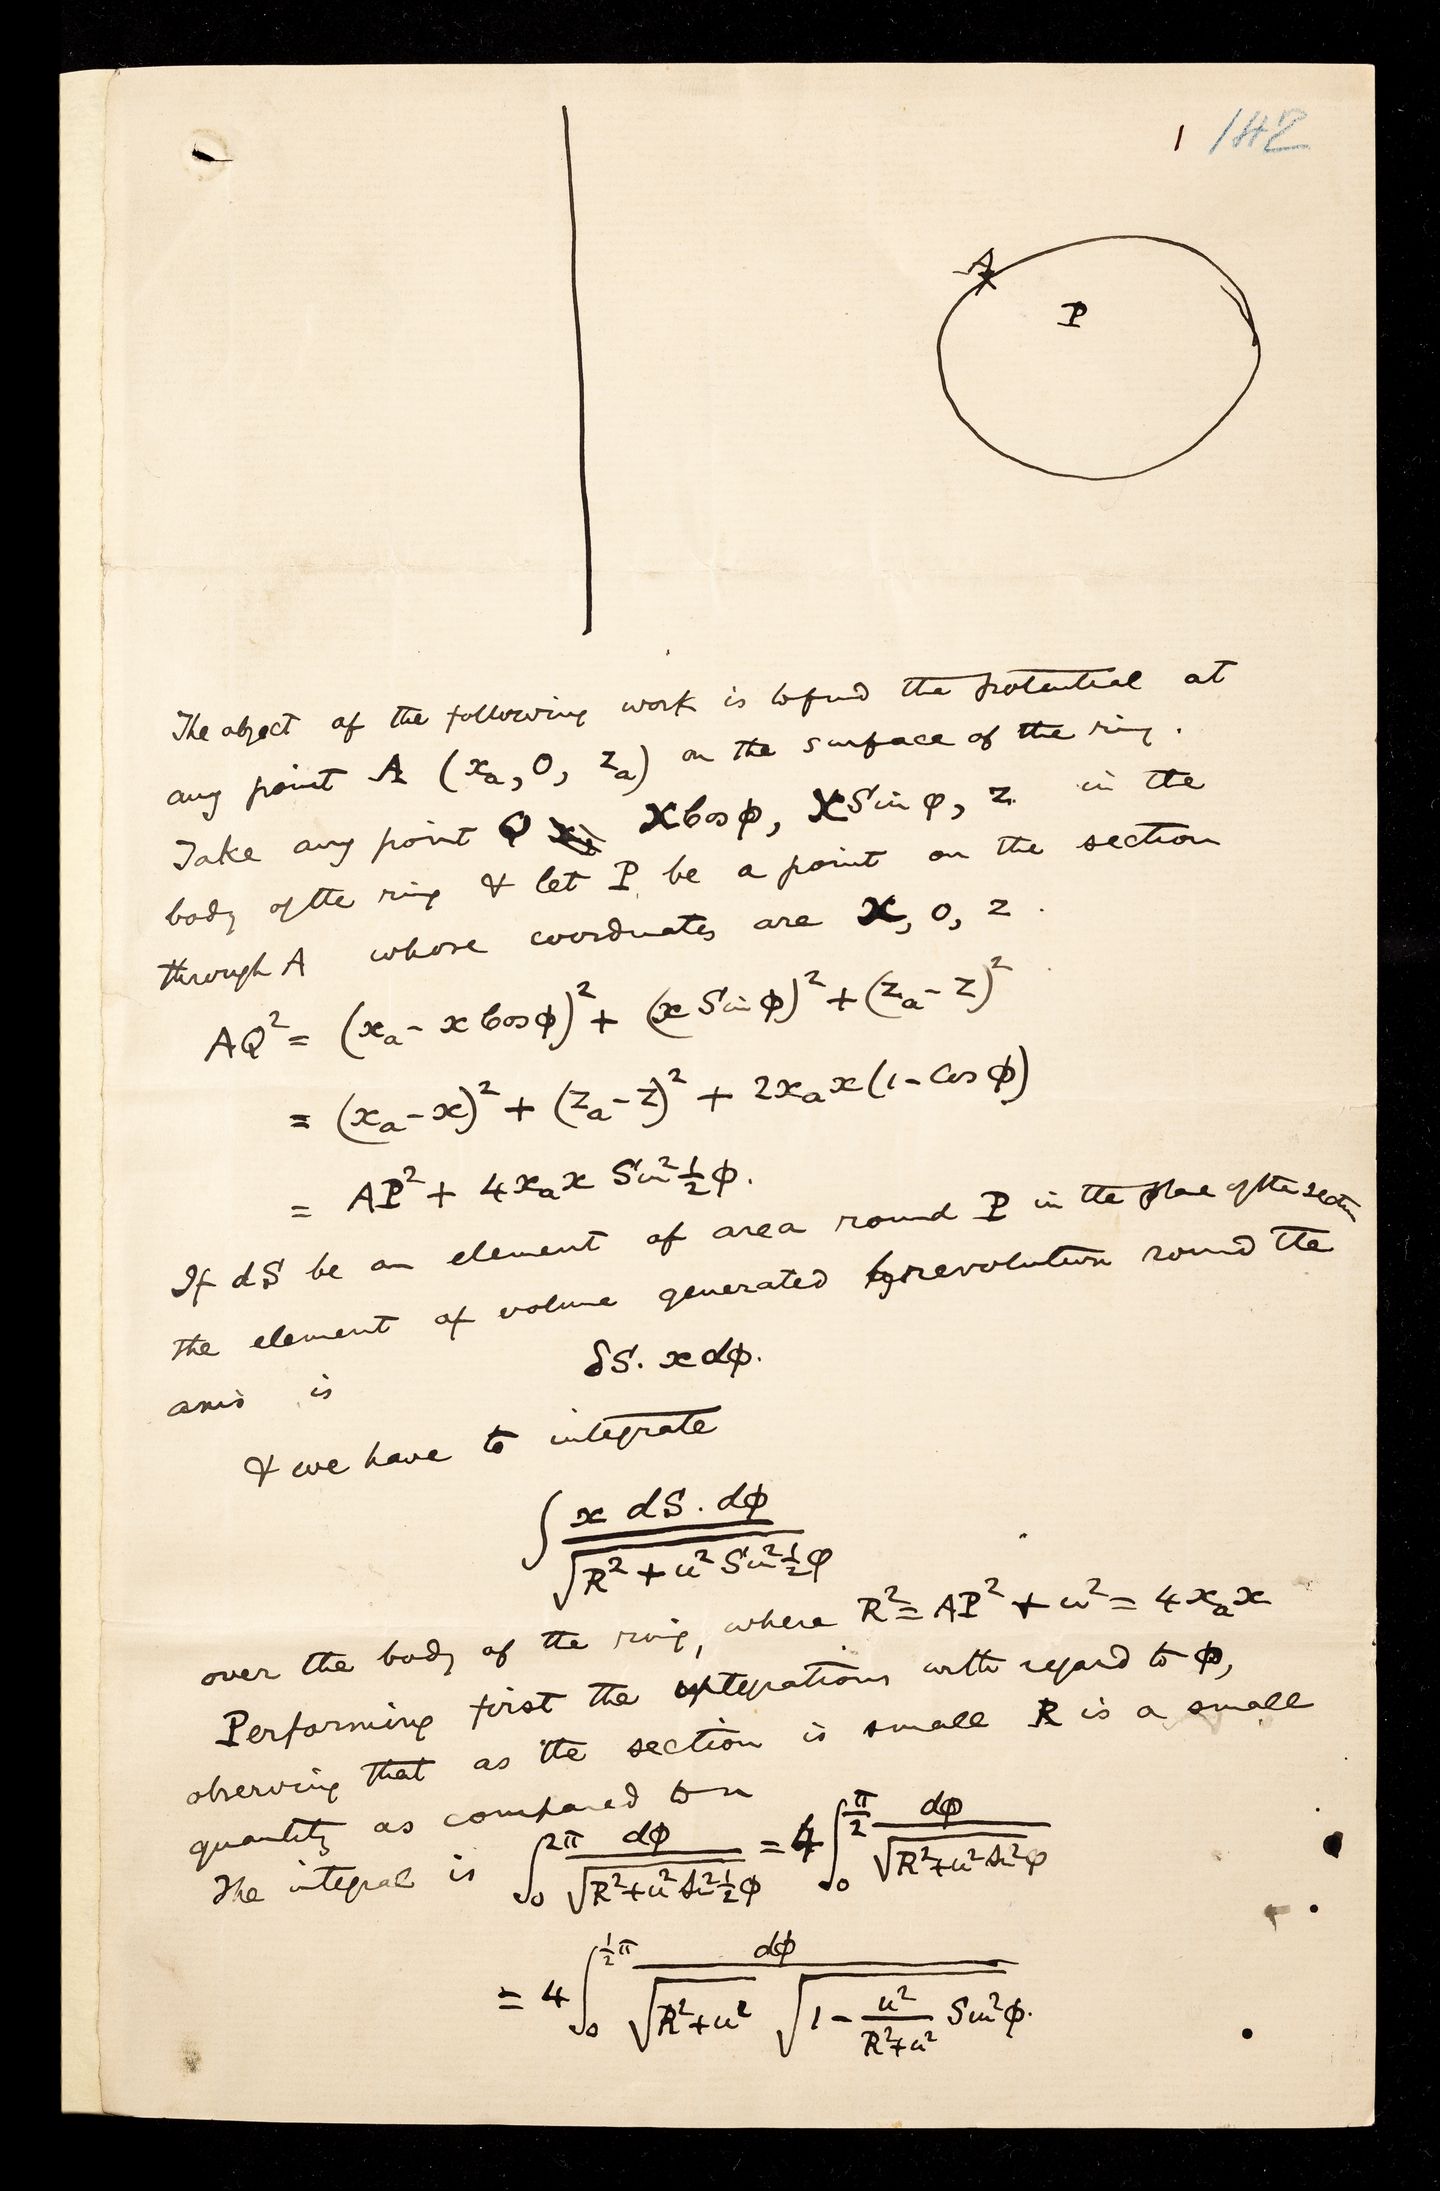 1 142
A
P
The object of the following work is to find the potential at
any point A (xₐ, 0, zₐ) on the surface of the ring.
Take any point Q x Cos φ, x Sin φ, z in the
body of the ring & let P be a point on the section
through A whose coordinates are x, 0, z.
AQ² = (xₐ - x Cos φ)² + (x Sin φ)² + (zₐ - z)²
= (xₐ - x)² + (zₐ - z)² + 2xₐx(1 - Cos φ)
= AP² + 4xₐx Sin² ½φ.
If dS be an element of area round P in the plane of the section
the element of volume generated by revolution round the
axis is δS. x dφ.
& we have to integrate
∫ x dS. dφ / √(R² + u² Sin² ½φ)
over the body of the ring, where R² = AP² + u² = 4xₐx
Performing first the integrations with regard to φ,
observing that as the section is small R is a small
quantity as compared to u
The integral is ∫₀^2π dφ / √(R² + u² Sin² ½φ) = 4 ∫₀^π/2 dφ / √(R² + u² Sin² φ)
= 4 ∫₀^½π dφ / √(R² + u²) √(1 - u²/(R² + u²) Sin² φ).